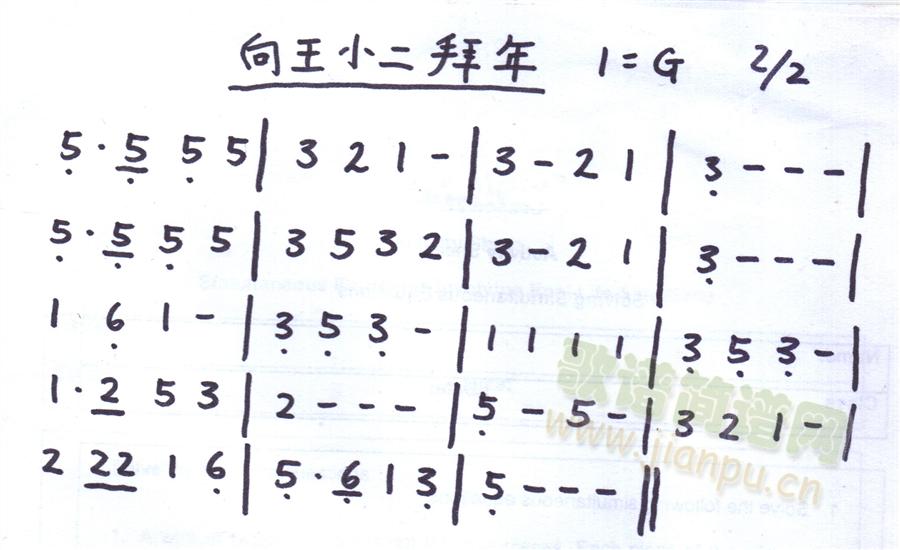 向王小二拜年 1=G 2/2
5̣·5̣ 5̣ 5|3 2 1 -|3 - 2 1|3̣ - - -|
5̣·5̣ 5̣ 5|3 5 3 2|3 - 2 1|3̣ - - -|
1 6̣ 1 -|3̣ 5̣ 3̣ -|1 1 1 1|3̣ 5̣ 3̣ -|
1·2 5 3|2 - - -|5̣ - 5 -|3 2 1 -|
2 22 1 6̣|5̣·6̣ 1 3̣|5̣ - - -||
歌谱简谱网
www.jianpu.cn